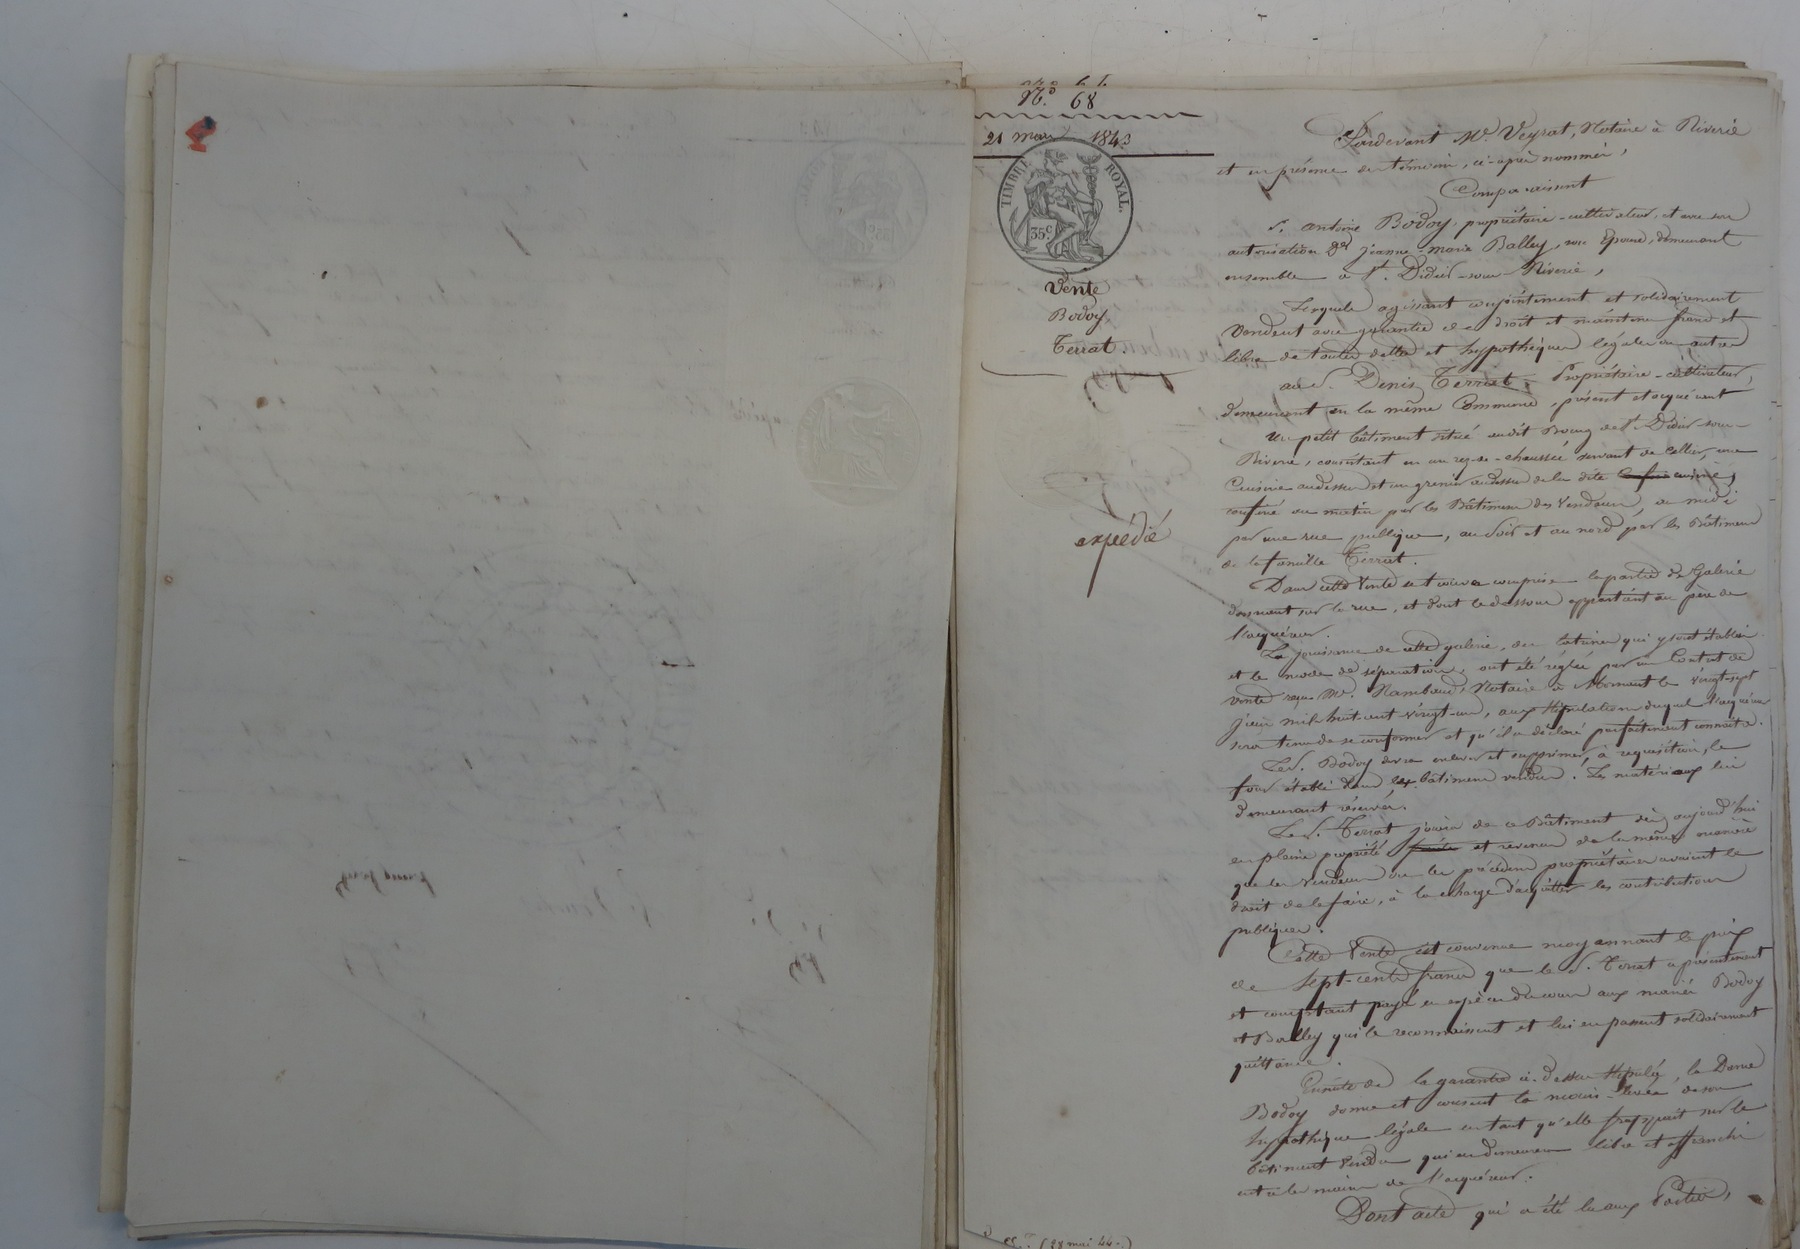 N.° 68
21 mars 1843
TIMBRE ROYAL.
35 c.
Vente
Bodoy
Terrat.
expédié
Pardevant Me. Veyrat, Notaire à Riverie
et en présence des témoins, ci-après nommés,
Comparaissent
S. antoine Bodoy, propriétaire-cultivateur, et avec son
autorisation De jeanne-marie Balley, son Epouse, demeurant
ensemble à St. Didier-sous-Riverie,
Lesquels agissant conjointement et solidairement
Vendent avec garantie de droit et maintenue franc et
libre de toutes dettes et hypothèques légales ou autres
au S. Denis Terrat, Propriétaire-cultivateur,
demeurant en la même Commune, présent et acquérant
Un petit bâtiment situé audit Bourg de St. Didier-sous-
Riverie, consistant en un rez-de-chaussée servant de Cellier, une
Cuisine audessus et un grenier audessus de la dite cuisine,
confiné au matin par les Bâtimens des Vendeurs, au midi
par une rue publique, au soir et au nord par les Bâtimens
de la famille Terrat.
Dans cette Vente est comprise la partie de Galerie
donnant sur la rue, et dont le dessous appartient au père de
l'acquéreur.
La jouissance de cette galerie, des latrines qui y sont établies
et le mode de séparation, ont été réglés par un Contrat de
vente reçu Me. Rambaud, Notaire à Mornant le vingt-sept
juin mil huit-cent vingt-un, aux stipulations duquel l'acquéreur
sera tenu de se conformer et qu'il a déclaré parfaitement connaître.
Le S. Bodoy devra enlever et supprimer, à réquisition, le
four établi dans les bâtimens vendus. Les matériaux lui
demeurant réservés.
Le S. Terrat jouira de ce Bâtiment dès aujourd'hui
en pleine propriété et revenus de la même manière
que les Vendeurs ou les précédens propriétaires avaient le
droit de le faire, à la charge d'acquitter les contributions
publiques.
Cette Vente est convenue moyennant le prix
de Sept-cents francs que le S. Terrat a présentement
et comptant payé en espèces du cours aux mariés Bodoy
et Balley qui le reconnaissent et lui en passent solidairement
quittance.
Ensuite de la garantie ci-dessus stipulée, la Dame
Bodoy donne et consent la main-levée de son
hypothèque légale en tant qu'elle frapperait sur le
bâtiment vendu qui en demeurera libre et affranchi
entre les mains de l'acquéreur.
Dont acte qui a été lu aux Parties,
(28 mai 44.)